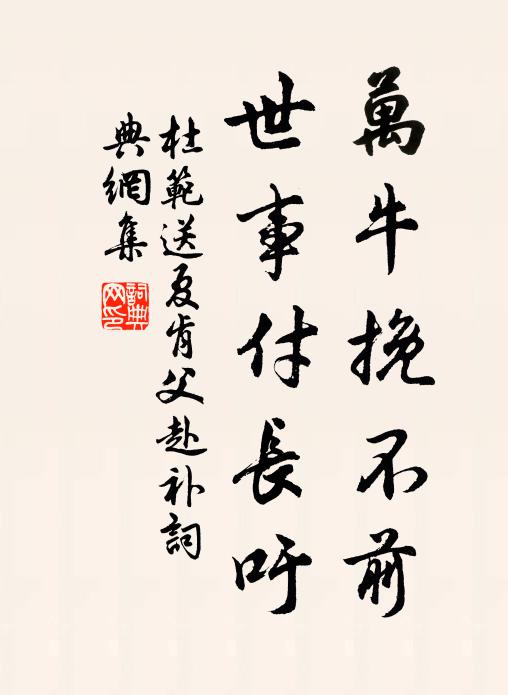 萬牛挽不前
世事付長吁
杜範送夏肯父赴补詞
典網集
詞典網印